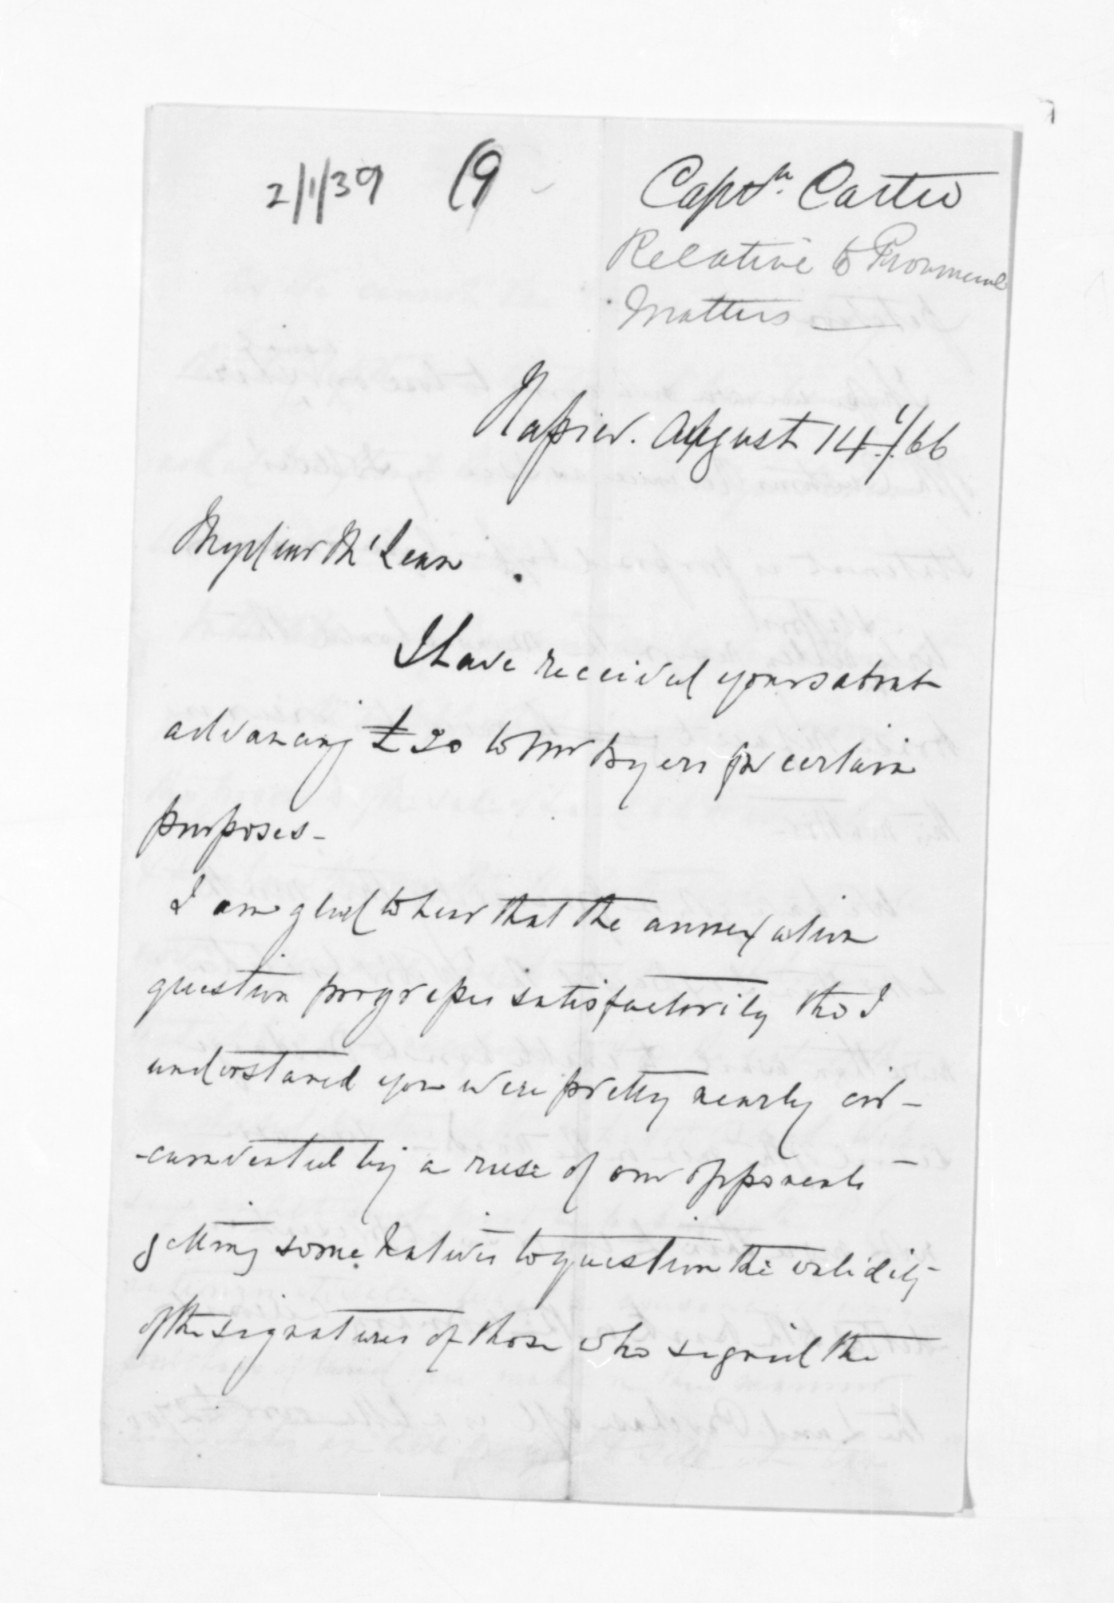 2/1/39 (9
Captn. Carter
Relative to Provincial
Matters
Napier. August 14./66
My dear McLean
I have received yours about
advancing £20 to Mr Byers for certain
purposes -
I am glad to hear that the annexation
question progresses satisfactorily tho I
understand you were pretty nearly cir-
-cumvented by a ruse of our opponents
getting some Natives to question the validity
of the signatures of those who signed the